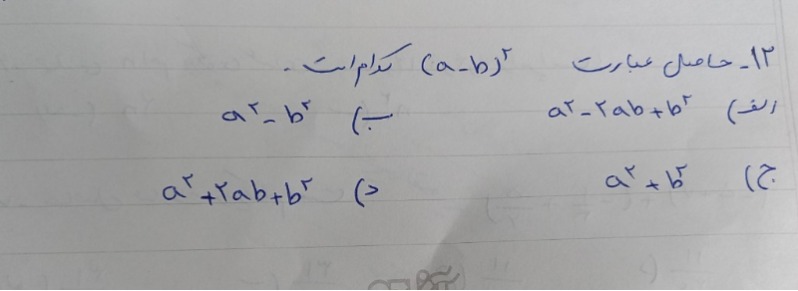 ۱۲- حاصل عبارت (a-b)^۲ کدام است.
الف) a^۲-۲ab+b^۲ ب) a^۲-b^۲
ج) a^۲+b^۲ د) a^۲+۲ab+b^۲